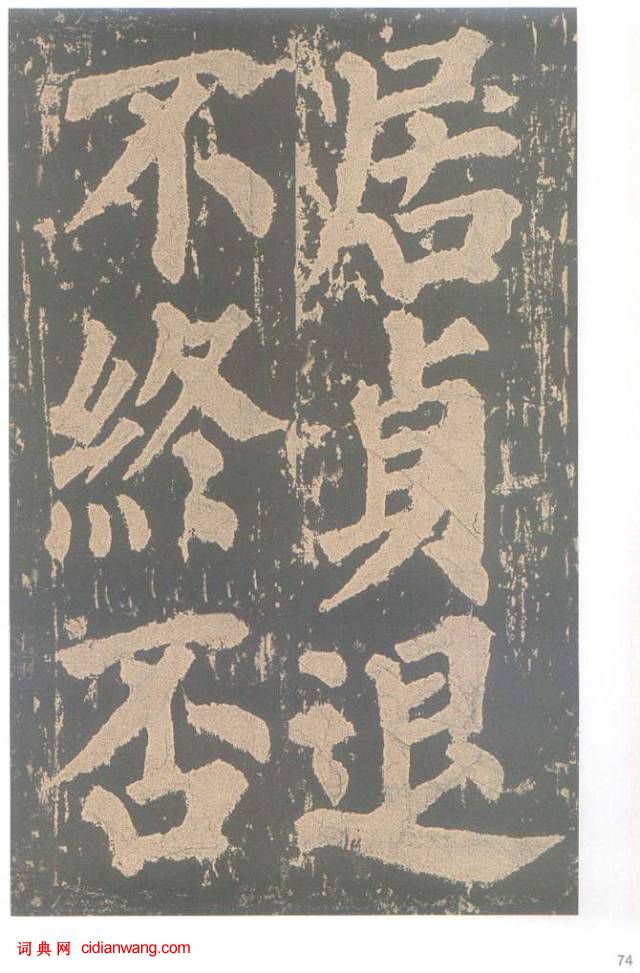 居貞退
不終否
词典网 cidianwang.com
74